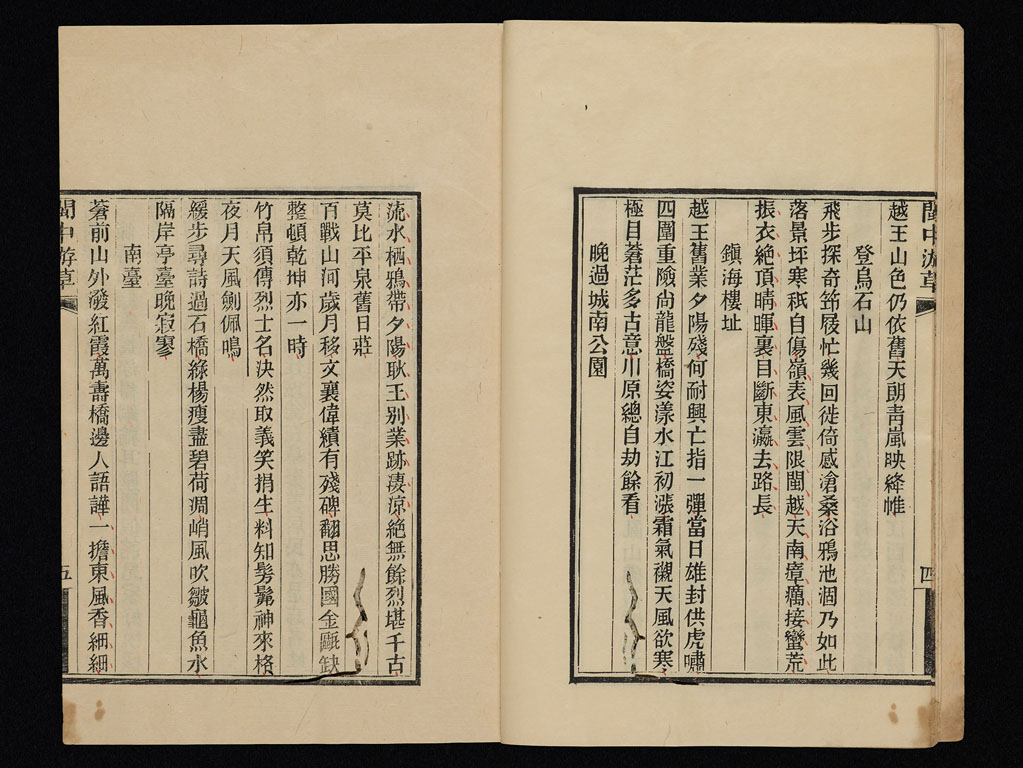 閩中游草
四
越王山色仍依舊天朗青嵐映絳帷
登烏石山
飛步探奇笻屐忙幾回徙倚感滄桑浴鴉池涸乃如此
落景坪寒秖自傷嶺表風雲限閩越天南瘴癘接蠻荒
振衣絕頂晴暉裏目斷東瀛去路長
鎮海樓址
越王舊業夕陽殘何耐興亡指一彈當日雄封供虎嘯
四圍重險尙龍盤橋姿漾水江初漲霜氣襯天風欲寒
極目蒼茫多古意川原總自劫餘看
晚過城南公園
流水栖鴉帶夕陽耿王別業跡淒涼絕無餘烈堪千古
莫比平泉舊日莊
百戰山河歲月移文襄偉績有殘碑翻思勝國金甌缺
整頓乾坤亦一時
竹帛須傳烈士名決然取義笑捐生料知髣髴神來格
夜月天風劍佩鳴
緩步尋詩過石橋綠楊瘦盡碧荷凋峭風吹皺龜魚水
隔岸亭臺晚寂寥
南臺
蒼前山外潑紅霞萬壽橋邊人語譁一擔東風香細細
閩中游草
五